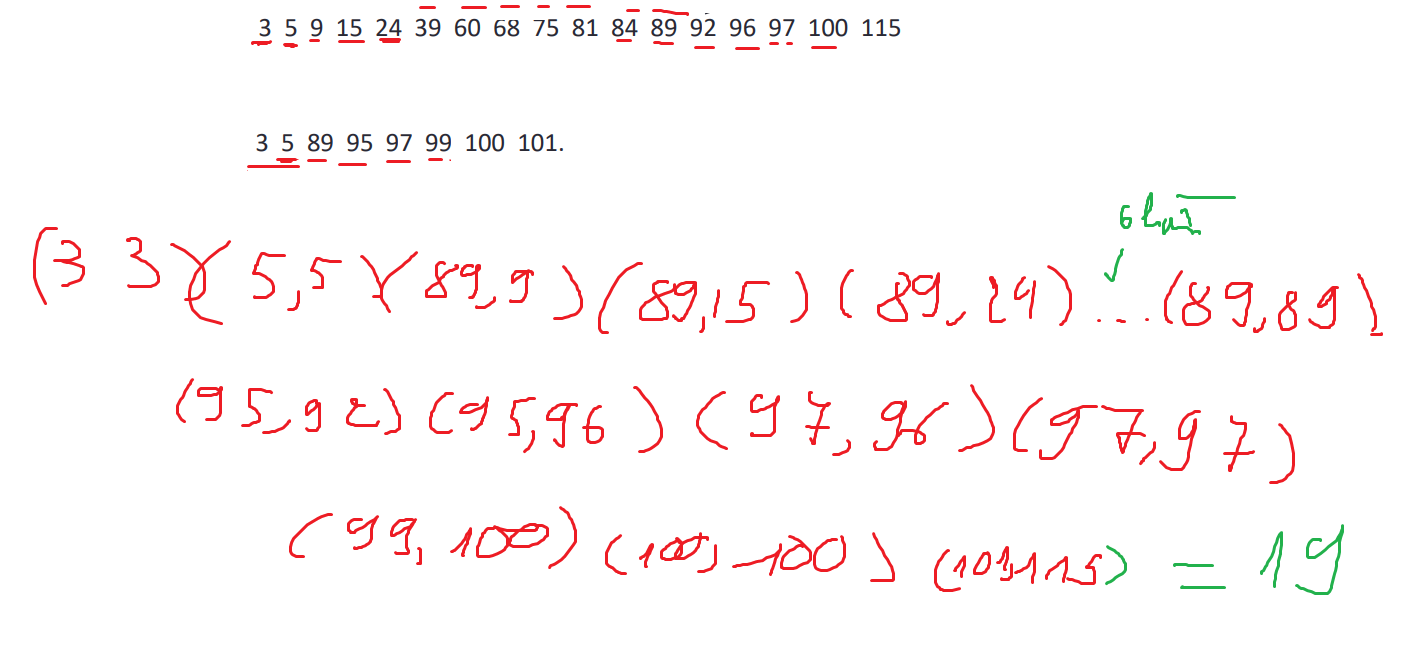 3 5 9 15 24 39 60 68 75 81 84 89 92 96 97 100 115
3 5 89 95 97 99 100 101.
6 lần
(3 3)(5,5)(89,9)(89,15)(89,24)...(89,89)
(95,92)(95,96)(97,96)(97,97)
(99,100)(100,100)(101,115) = 19